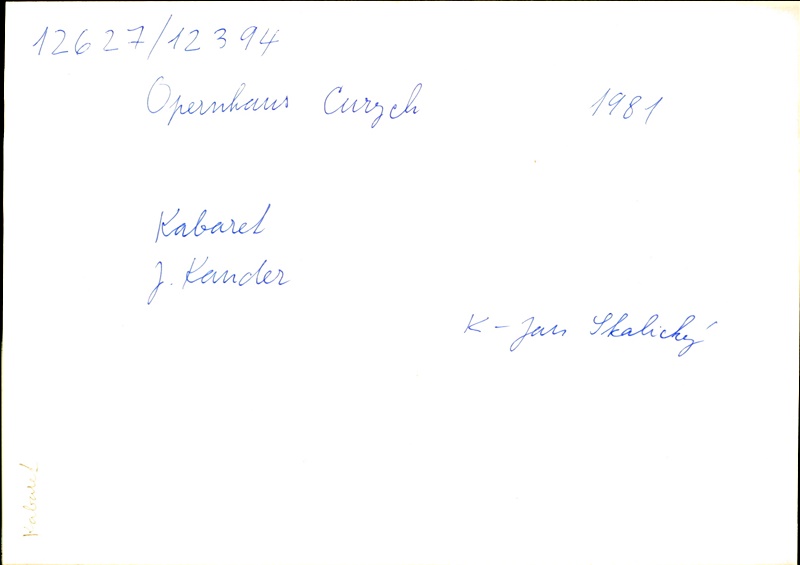 12627/12394
Opernhaus Curych 1981
Kabaret
J. Kander
K - Jan Skalický
Kabaret